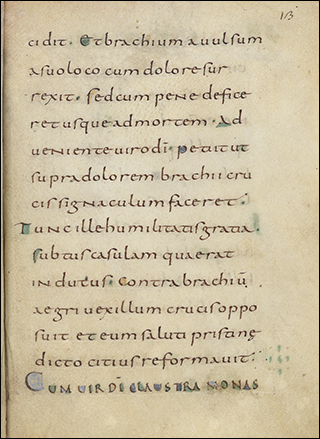 13
cidit. Et brachium avulsum
a suo loco cum dolore sur
rexit. Sed cum pene defice
ret usque ad mortem. Ad
veniente viro dī. Petit ut
supra dolorem brachii cru
cis signaculum faceret.
Tunc ille humilitatis gratia.
subtus casulam quaerat
indutus. Contra brachiū
aegri vexillum crucis oppo
suit et eum saluti pristinę
dicto citius reformavit.
CUM VIR DĪ CLAUSTRA MONAS